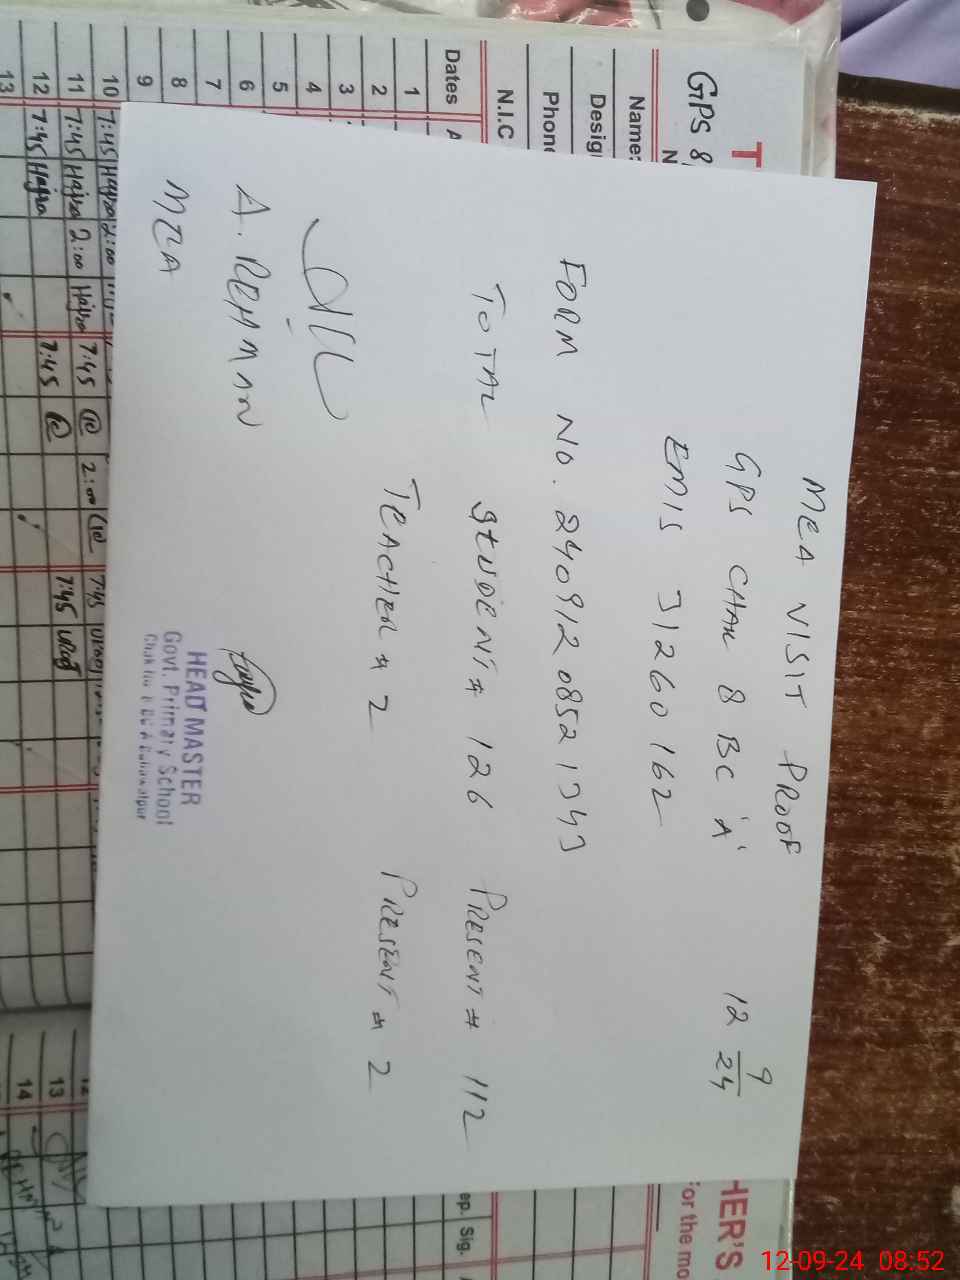 MEA VISIT PROOF
GPS CHAK 8 BC 'A' 12 9/24
EMIS 31260162
FORM NO. 24091208521343
TOTAL STUDENT = 126 PRESENT = 112
TEACHER = 2 PRESENT = 2
A. REHMAN
MEA
HEAD MASTER
Govt. Primary School
GPS 8
Name:
Desig
Phone
N.I.C
Dates
1
2
3
4
5
6
7
8
9
10 7:45 Hajra 2:00
11 7:45 Hajra 2:00 Hajra 7:45 2:00 7:45
12 7:45 Hajra 7:45 7:45
13
HER'S
for the mo
ep. Sig.
13
14
12-09-24 08:52